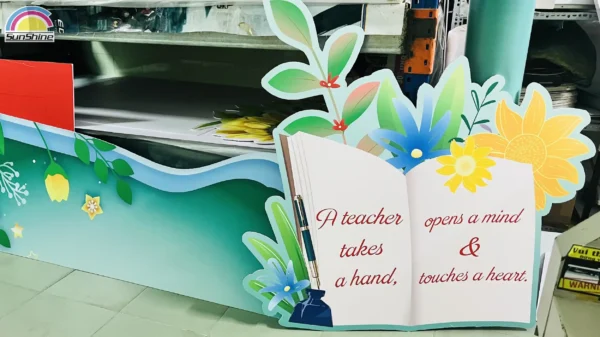 SunShine
A teacher
takes
a hand,
opens a mind
&
touches a heart.
WARNI